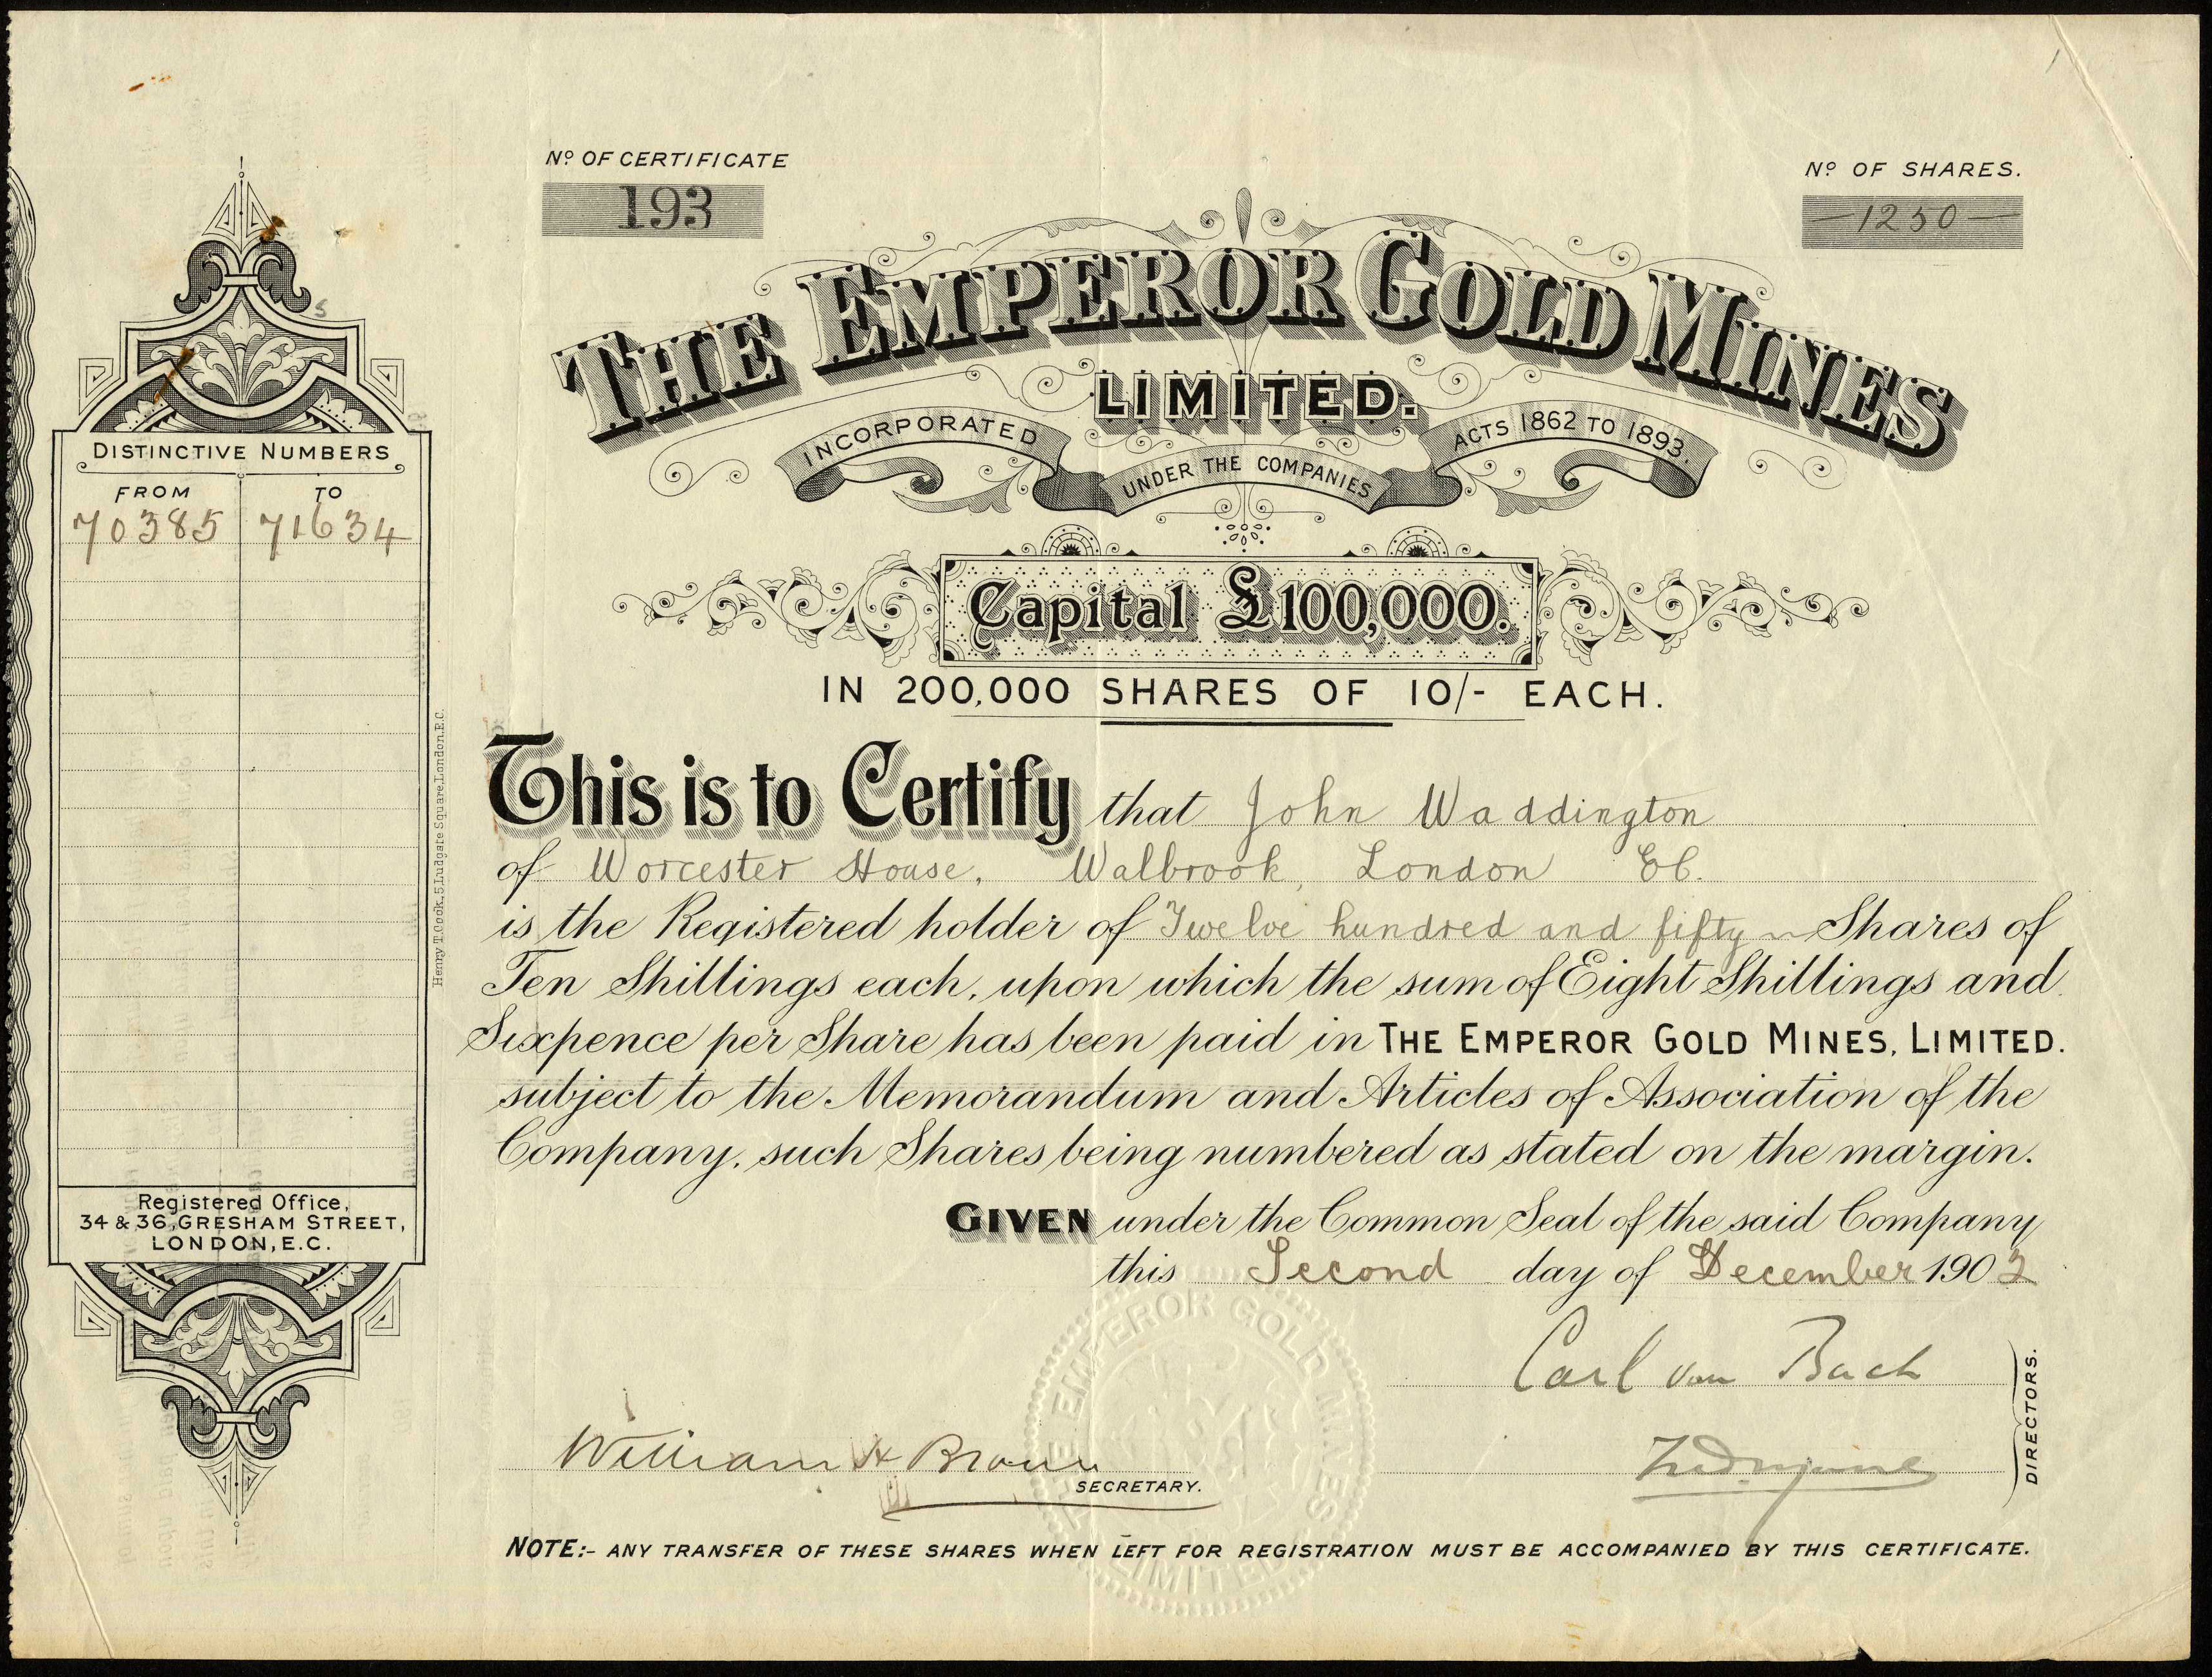 Nº OF CERTIFICATE
193
Nº OF SHARES.
1250
THE EMPEROR GOLD MINES
LIMITED.
INCORPORATED UNDER THE COMPANIES ACTS 1862 TO 1893.
Capital £100,000.
IN 200,000 SHARES OF 10/- EACH.
DISTINCTIVE NUMBERS
FROM TO
70385 71634
Registered Office,
34 & 36, GRESHAM STREET,
LONDON, E.C.
Henry T. Cook, 5, Ludgate Square, London, E.C.
This is to Certify that John Waddington
of Worcester House, Walbrook, London EC.
is the Registered holder of Twelve hundred and fifty Shares of
Ten Shillings each, upon which the sum of Eight Shillings and
Sixpence per Share has been paid in THE EMPEROR GOLD MINES, LIMITED.
subject to the Memorandum and Articles of Association of the
Company, such Shares being numbered as stated on the margin.
GIVEN under the Common Seal of the said Company
this Second day of December 1902
Carl von Buch
DIRECTORS.
William H Brown
SECRETARY.
THE EMPEROR GOLD MINES LIMITED
NOTE:- ANY TRANSFER OF THESE SHARES WHEN LEFT FOR REGISTRATION MUST BE ACCOMPANIED BY THIS CERTIFICATE.